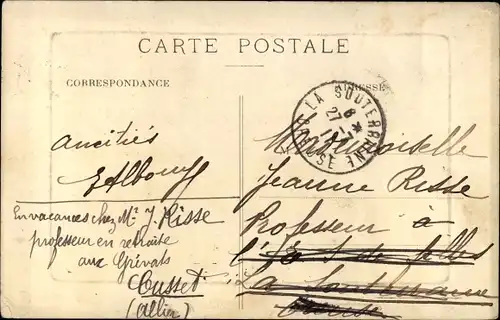 CARTE POSTALE
CORRESPONDANCE
ADRESSE
LA SOUTERRAINE
CREUSE
8
27
amitiés
En vacances chez Mr J. Risse
professeur en retraite
aux Grivats
Cusset
(Allier)
Mademoiselle
Jeanne Risse
Professeur à
l'E. S. de filles
La Souterraine
Creuse